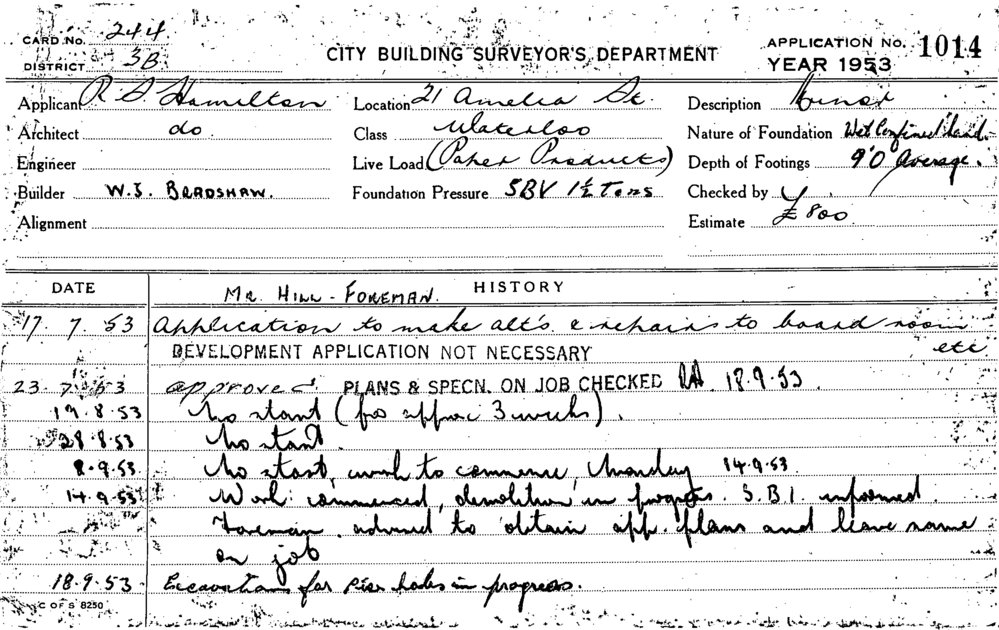 CARD No. 244
DISTRICT 3B
CITY BUILDING SURVEYOR'S DEPARTMENT
APPLICATION No. 1014
YEAR 1953
Applicant R S. Hamilton Location 21 Amelia St. Description Minor
Architect do Class Waterloo Nature of Foundation Wet Confined Sand.
Engineer Live Load (Paper Products) Depth of Footings 9'0 Average.
Builder W.J. BRADSHAW. Foundation Pressure SBV 1½ Tons Checked by
Alignment Estimate £800.
DATE HISTORY
MR. HILL - FOREMAN.
17. 7. 53 Application to make alt's & repairs to board room
DEVELOPMENT APPLICATION NOT NECESSARY etc
23. 7. 53 approved PLANS & SPECN. ON JOB CHECKED 18.9.53.
19.8.53 No start (for approx 3 weeks).
28.8.53 No start.
8.9.53 No start, work to commence, Monday 14.9.53
14.9.53 Work commenced, demolition in progress. S.B.I. informed.
Foreman advised to obtain app. plans and leave same
on job
18.9.53. Excavations for pier holes in progress.
C OF S 8250